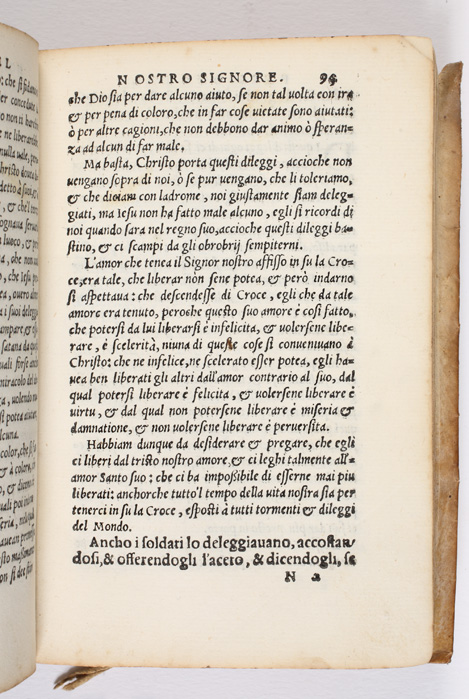 NOSTRO SIGNORE. 94
che Dio sia per dare alcuno aiuto, se non tal volta con ira
& per pena di coloro, che in far cose vietate sono aiutati:
ò per altre cagioni, che non debbono dar animo ò speran-
za ad alcun di far male.
Ma basta, Christo porta questi dileggi, accioche non
uengano sopra di noi, ò se pur uengano, che li toleriamo,
& che diciam con ladrome, noi giustamente siam deleg-
giati, ma Iesu non ha fatto male alcuno, egli si ricordi di
noi quando sara nel regno suo, accioche questi dileggi ba-
stino, & ci scampi da gli obrobrij sempiterni.
L'amor che tenea il Signor nostro affisso in su la Cro-
ce, era tale, che liberar non sene potea, & però indarno
si aspettaua: che descendesse di Croce, egli che da tale
amore era tenuto, peroche questo suo amore è così fatto,
che potersi da lui liberarsi è infelicita, & uolersene libe-
rare, è scelerità, niuna di queste cose si conueniuano à
Christo: che ne infelice, ne scelerato esser potea, egli ha-
uea ben liberati gli altri dall'amor contrario al suo, dal
qual potersi liberare è felicita, & uolersene liberare è
uirtu, & dal qual non potersene liberare è miseria &
damnatione, & non uolersene liberare è peruersita.
Habbiam dunque da desiderare & pregare, che egli
ci liberi dal tristo nostro amore, & ci leghi talmente all'-
amor Santo suo: che ci ha impossibile di esserne mai piu
liberati: anchorche tutto'l tempo della vita nostra sia per
tenerci in su la Croce, esposti à tutti tormenti & dileggi
del Mondo.
Ancho i soldati lo deleggiauano, accostan
dosi, & offerendogli l'aceto, & dicendogli, se
N 2